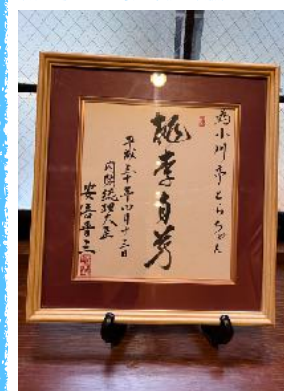 為小川亭とらちゃん
桃李自芳
平成三十年四月十三日
内閣総理大臣
安倍晋三